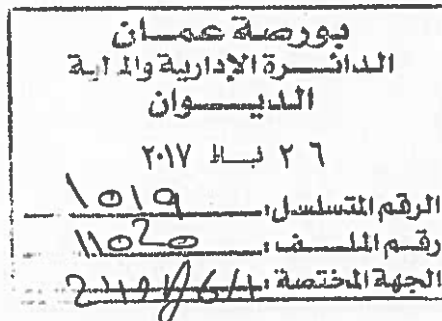 بورصة عمان
الدائرة الإدارية والمالية
الديوان
٢٦ نيسان ٢٠١٧
الرقم المتسلسل: ١٥١٩
رقم الملف:
الجهة المختصة: